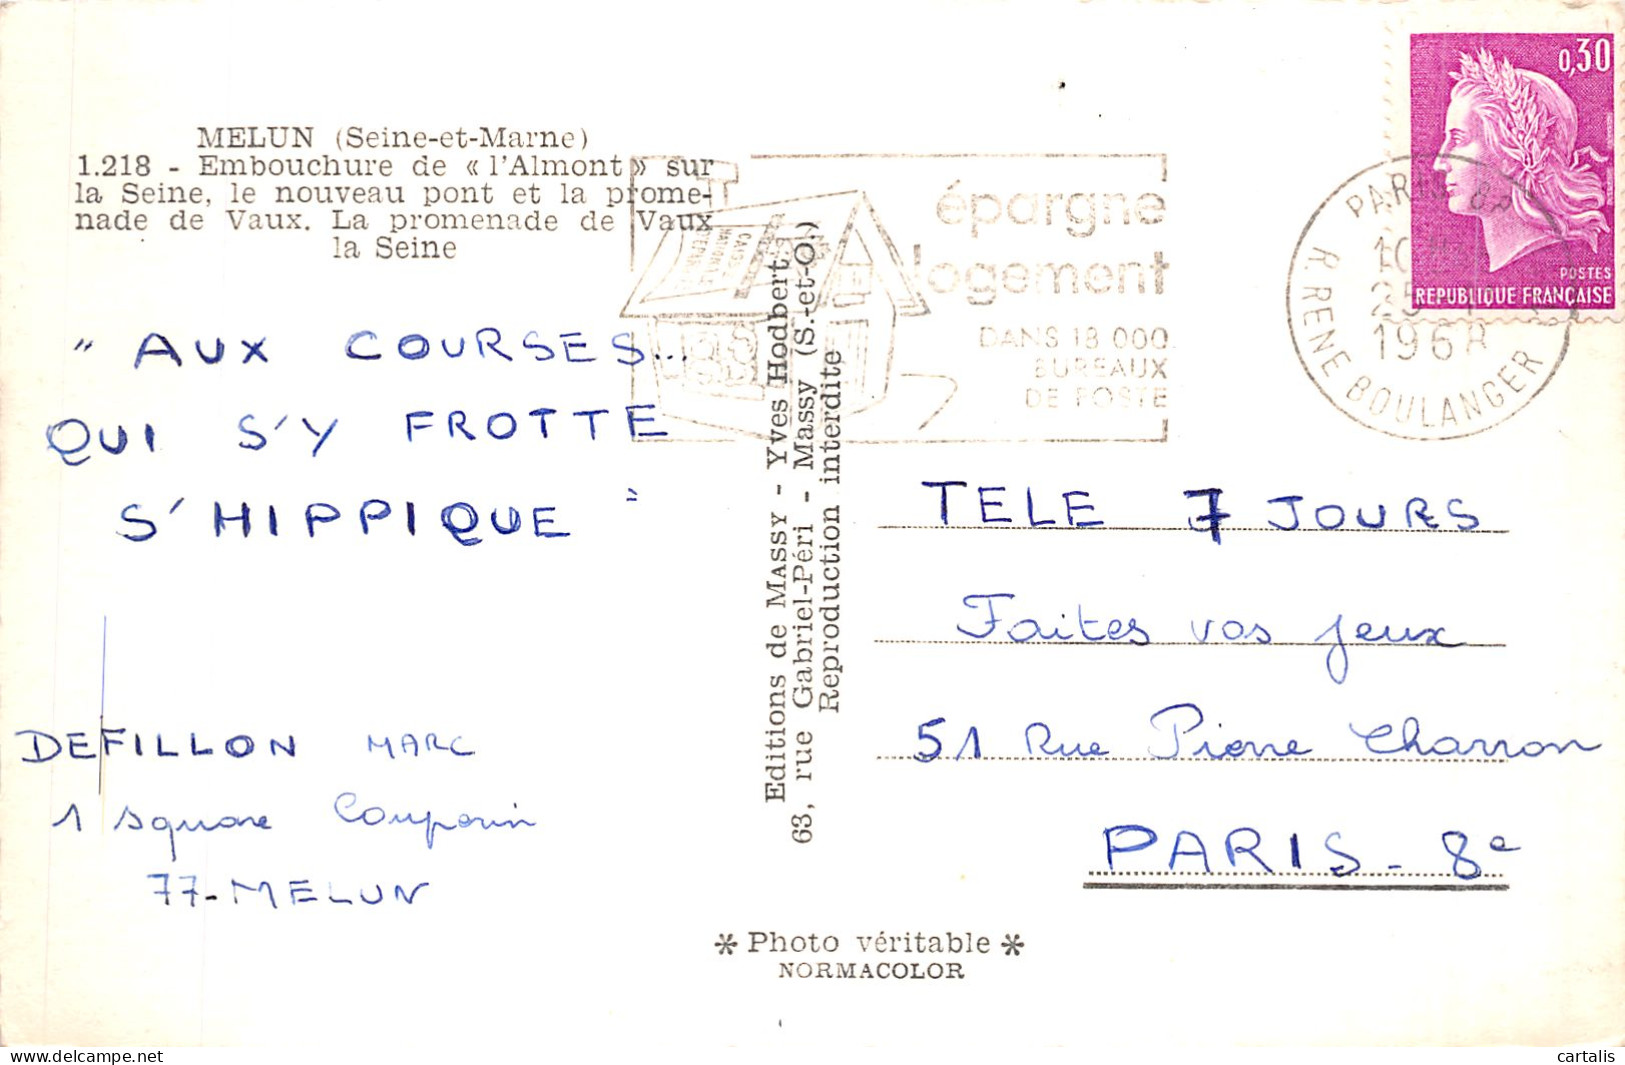 MELUN (Seine-et-Marne)
1.218 - Embouchure de « l'Almont » sur
la Seine, le nouveau pont et la prome-
nade de Vaux. La promenade de Vaux
la Seine
" AUX COURSES...
QUI S'Y FROTTE
S'HIPPIQUE "
DEFILLON MARC
1 square Couperin
77-MELUN
Editions de MASSY - Yves Hodbert
63, rue Gabriel-Péri - Massy (S.-et-O.)
Reproduction interdite
épargne
logement
DANS 18 000
BUREAUX
DE POSTE
PARIS 8
R. RENE BOULANGER
25
1968
0,30
POSTES
REPUBLIQUE FRANÇAISE
TELE 7 JOURS
Faites vos jeux
51 Rue Pierre Charron
PARIS - 8e
* Photo véritable *
NORMACOLOR
delcampe.net
cartalis